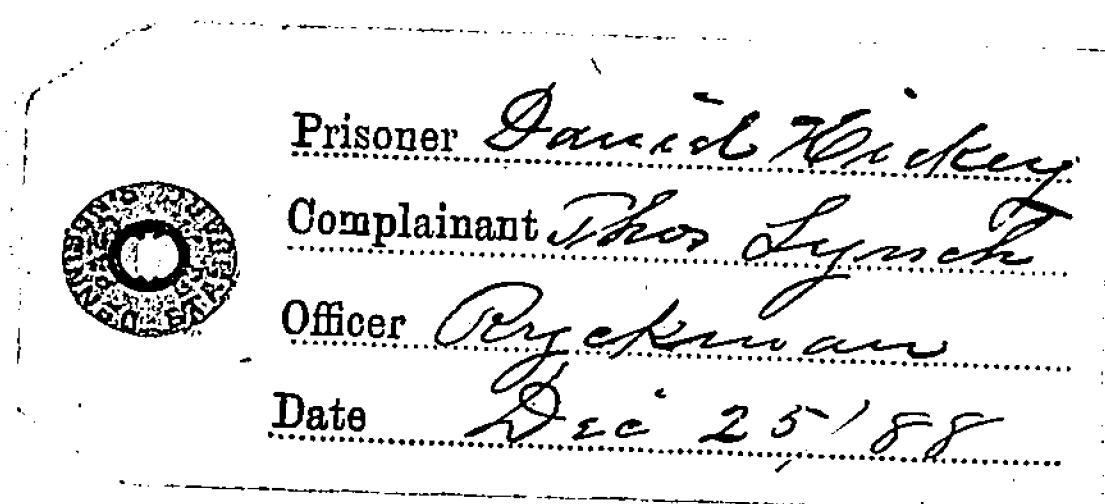 Prisoner David Hickey
Complainant Thos Lynch
Officer Ryckman
Date Dec 25, '88
DENNISON'S